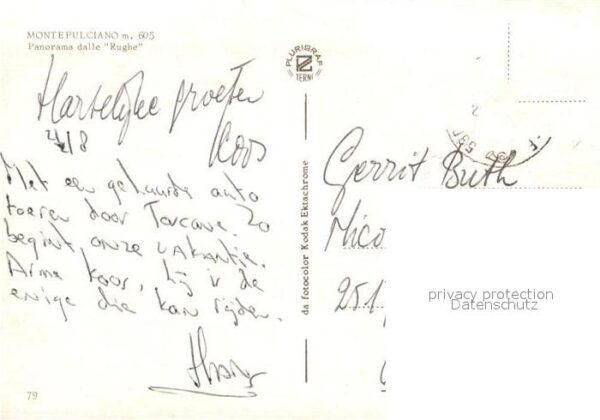 MONTEPULCIANO m. 605
Panorama dalle "Rughe"
Hartelijke groeten
Koos
4/8
Met een gehuurde auto
toeren door Toscane. Zo
begint onze vakantie.
Arme Koos, hij is de
enige die kan rijden.
79
PLURIGRAF
TERNI
da fotocolor Kodak Ektachrome
Gerrit Buth
Nico
251
privacy protection
Datenschutz